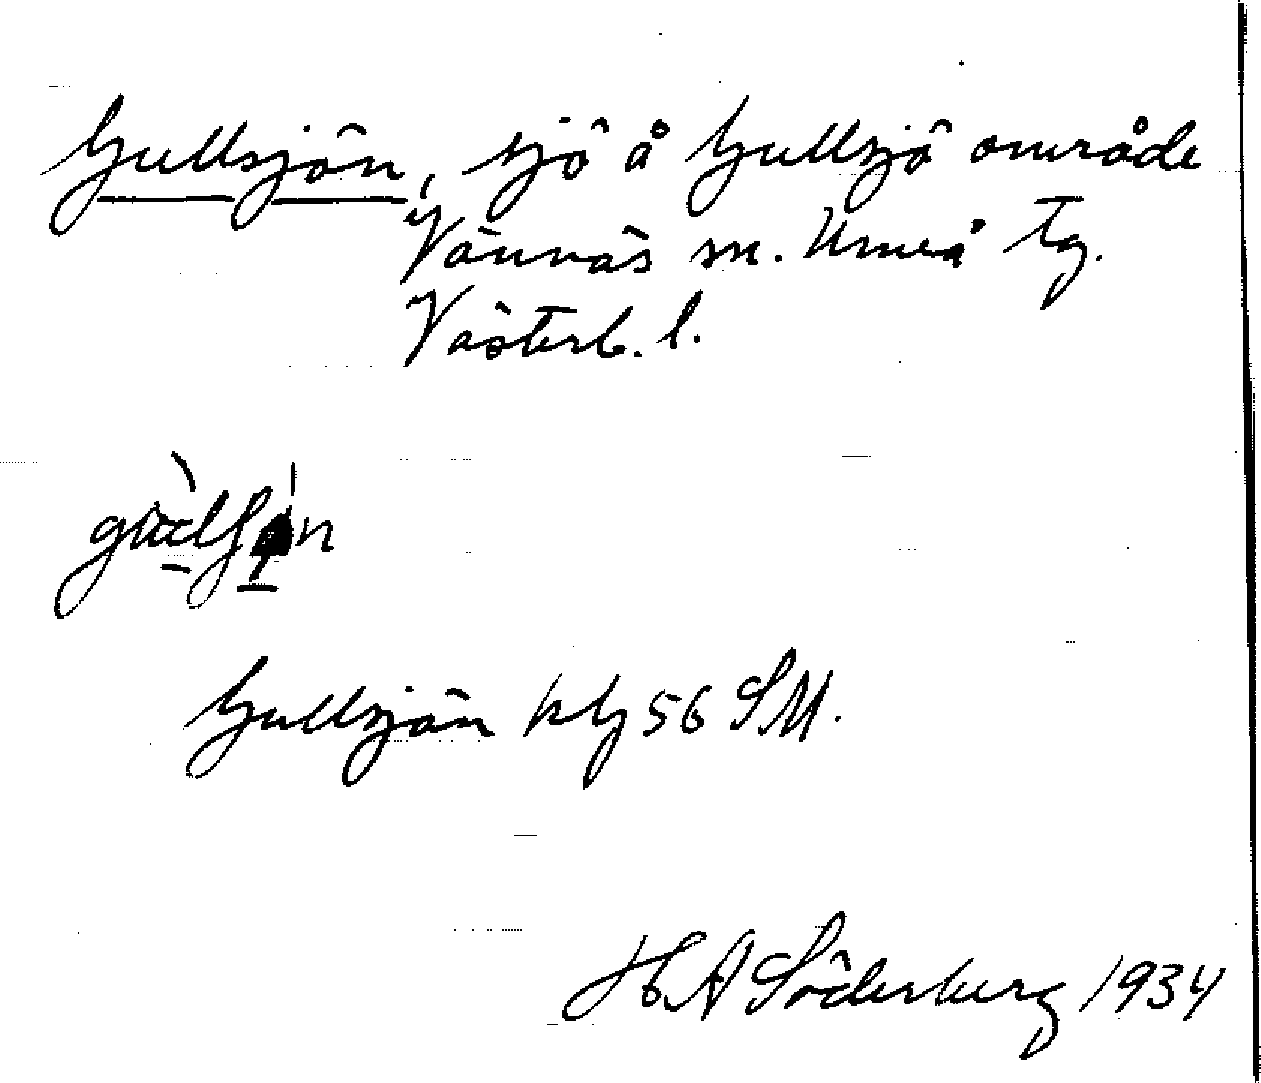 Gullsjön, sjö å Gullsjö område
Vännäs sn. Umeå tg.
Västerb. l.
Gullsjön kbl 56 SM.
H A Söderberg 1934